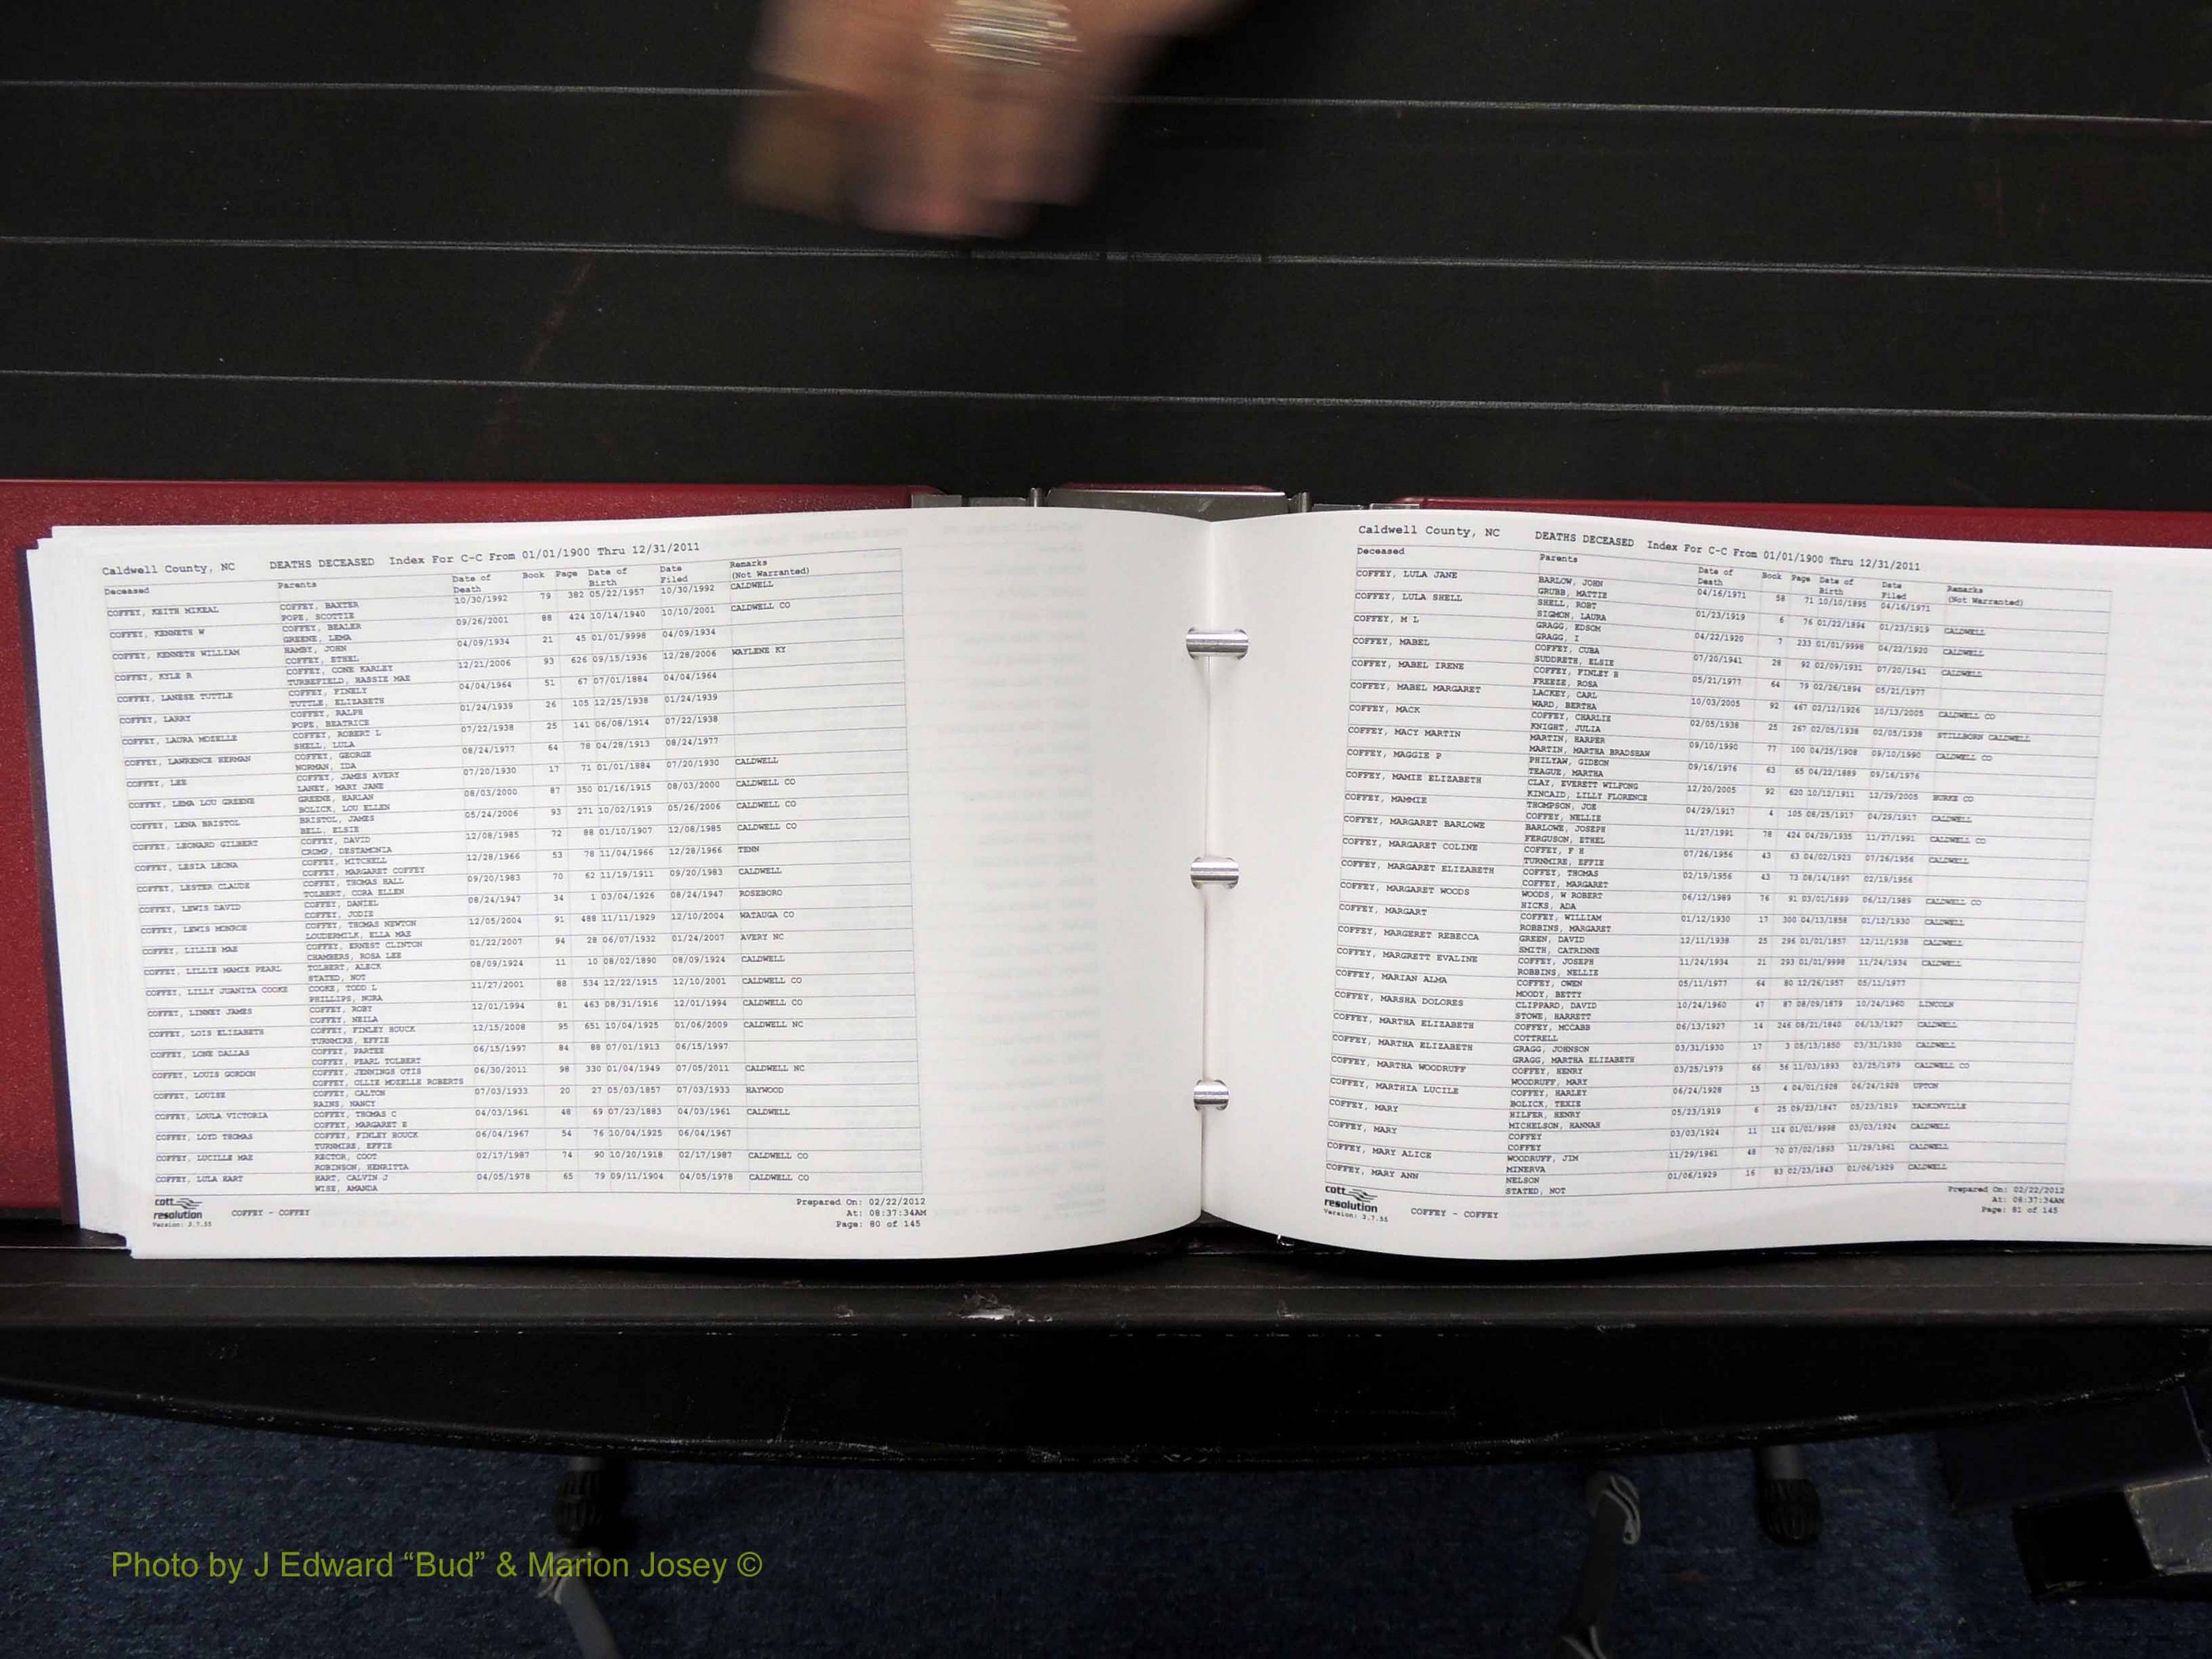 Caldwell County, NC DEATHS DECEASED Index For C-C From 01/01/1900 Thru 12/31/2011
Deceased Parents Date of Death Book Page Date of Birth Date Filed Remarks (Not Warranted)
COFFEY, KEITH MIKEAL COFFEY, BAXTER 10/30/1992 79 382 05/22/1957 10/30/1992 CALDWELL
POPE, SCOTTIE
COFFEY, KENNETH W COFFEY, BEALER 09/26/2001 88 424 10/14/1940 10/10/2001 CALDWELL CO
GREENE, LEMA
COFFEY, KENNETH WILLIAM HAMBY, JOHN 04/09/1934 21 45 01/01/9998 04/09/1934
COFFEY, ETHEL
COFFEY, KYLE R COFFEY, CONE KARLEY 12/21/2006 93 626 09/15/1936 12/28/2006 WAYLENE KY
TURBEFIELD, HASSIE MAE
COFFEY, LANESE TUTTLE COFFEY, FINELY 04/04/1964 51 67 07/01/1884 04/04/1964
TUTTLE, ELIZABETH
COFFEY, LARRY COFFEY, RALPH 01/24/1939 26 105 12/25/1938 01/24/1939
POPE, BEATRICE
COFFEY, LAURA MOZELLE COFFEY, ROBERT L 07/22/1938 25 141 06/08/1914 07/22/1938
SHELL, LULA
COFFEY, LAWRENCE HERMAN COFFEY, GEORGE 08/24/1977 64 78 04/28/1913 08/24/1977
NORMAN, IDA
COFFEY, LEE COFFEY, JAMES AVERY 07/20/1930 17 71 01/01/1884 07/20/1930 CALDWELL
LANEY, MARY JANE
COFFEY, LEMA LOU GREENE GREENE, HARLAN 08/03/2000 87 350 01/16/1915 08/03/2000 CALDWELL CO
BOLICK, LOU ELLEN
COFFEY, LENA BRISTOL BRISTOL, JAMES 05/24/2006 93 271 10/02/1919 05/26/2006 CALDWELL CO
BELL, ELSIE
COFFEY, LEONARD GILBERT COFFEY, DAVID 12/08/1985 72 88 01/10/1907 12/08/1985 CALDWELL CO
CRUMP, DESTAMONIA
COFFEY, LESIA LEONA COFFEY, MITCHELL 12/28/1966 53 78 11/04/1966 12/28/1966 TENN
COFFEY, MARGARET COFFEY
COFFEY, LESTER CLAUDE COFFEY, THOMAS HALL 09/20/1983 70 62 11/19/1911 09/20/1983 CALDWELL
TOLBERT, CORA ELLEN
COFFEY, LEWIS DAVID COFFEY, DANIEL 08/24/1947 34 1 03/04/1926 08/24/1947 ROSEBORO
COFFEY, JODIE
COFFEY, LEWIS MONROE COFFEY, THOMAS NEWTON 12/05/2004 91 488 11/11/1929 12/10/2004 WATAUGA CO
LOUDERMILK, ELLA MAE
COFFEY, LILLIE MAE COFFEY, ERNEST CLINTON 01/22/2007 94 28 06/07/1932 01/24/2007 AVERY NC
CHAMBERS, ROSA LEE
COFFEY, LILLIE MAMIE PEARL TOLBERT, ALECK 08/09/1924 11 10 08/02/1890 08/09/1924 CALDWELL
STATED, NOT
COFFEY, LILLY JUANITA COOKE COOKE, TODD L 11/27/2001 88 534 12/22/1915 12/10/2001 CALDWELL CO
PHILLIPS, NORA
COFFEY, LINNEY JAMES COFFEY, ROBY 12/01/1994 81 463 08/31/1916 12/01/1994 CALDWELL CO
COFFEY, NEILA
COFFEY, LOIS ELIZABETH COFFEY, FINLEY HOUCK 12/15/2008 95 651 10/04/1925 01/06/2009 CALDWELL NC
TURNMIRE, EFFIE
COFFEY, LONE DALLAS COFFEY, PARTEE 06/15/1997 84 88 07/01/1913 06/15/1997
COFFEY, PEARL TOLBERT
COFFEY, LOUIS GORDON COFFEY, JENNINGS OTIS 06/30/2011 98 330 01/04/1949 07/05/2011 CALDWELL NC
COFFEY, OLLIE MOZELLE ROBERTS
COFFEY, LOUISE COFFEY, CALTON 07/03/1933 20 27 05/03/1857 07/03/1933 HAYWOOD
RAINS, NANCY
COFFEY, LOULA VICTORIA COFFEY, THOMAS C 04/03/1961 48 69 07/23/1883 04/03/1961 CALDWELL
COFFEY, MARGARET E
COFFEY, LOYD THOMAS COFFEY, FINLEY HOUCK 06/04/1967 54 76 10/04/1925 06/04/1967
TURNMIRE, EFFIE
COFFEY, LUCILLE MAE RECTOR, COOT 02/17/1987 74 90 10/20/1918 02/17/1987 CALDWELL CO
ROBINSON, HENRITTA
COFFEY, LULA HART HART, CALVIN J 04/05/1978 65 79 09/11/1904 04/05/1978 CALDWELL CO
WISE, AMANDA
cott resolution Version: 3.7.55 COFFEY - COFFEY
Prepared On: 02/22/2012
At: 08:37:34AM
Page: 80 of 145
Caldwell County, NC DEATHS DECEASED Index For C-C From 01/01/1900 Thru 12/31/2011
Deceased Parents Date of Death Book Page Date of Birth Date Filed Remarks (Not Warranted)
COFFEY, LULA JANE BARLOW, JOHN 04/16/1971 58 71 10/10/1895 04/16/1971
GRUBB, MATTIE
COFFEY, LULA SHELL SHELL, ROBT 01/23/1919 6 76 01/22/1894 01/23/1919 CALDWELL
SIGMON, LAURA
COFFEY, M L GRAGG, EDSOM 04/22/1920 7 233 01/01/9998 04/22/1920 CALDWELL
GRAGG, I
COFFEY, MABEL COFFEY, CUBA 07/20/1941 28 92 02/09/1931 07/20/1941 CALDWELL
SUDDRETH, ELSIE
COFFEY, MABEL IRENE COFFEY, FINLEY H 05/21/1977 64 79 02/26/1894 05/21/1977
FREEZE, ROSA
COFFEY, MABEL MARGARET LACKEY, CARL 10/03/2005 92 467 02/12/1926 10/13/2005 CALDWELL CO
WARD, BERTHA
COFFEY, MACK COFFEY, CHARLIE 02/05/1938 25 267 02/05/1938 02/05/1938 STILLBORN CALDWELL
KNIGHT, JULIA
COFFEY, MACY MARTIN MARTIN, HARPER 09/10/1990 77 100 04/25/1908 09/10/1990 CALDWELL CO
MARTIN, MARTHA BRADSHAW
COFFEY, MAGGIE P PHILYAW, GIDEON 09/16/1976 63 65 04/22/1889 09/16/1976
TEAGUE, MARTHA
COFFEY, MAMIE ELIZABETH CLAY, EVERETT WILFONG 12/20/2005 92 620 10/12/1911 12/29/2005 BURKE CO
KINCAID, LILLY FLORENCE
COFFEY, MAMMIE THOMPSON, JOE 04/29/1917 4 105 08/25/1917 04/29/1917 CALDWELL
COFFEY, NELLIE
COFFEY, MARGARET BARLOWE BARLOWE, JOSEPH 11/27/1991 78 424 04/29/1935 11/27/1991 CALDWELL CO
FERGUSON, ETHEL
COFFEY, MARGARET COLINE COFFEY, F H 07/26/1956 43 63 04/02/1923 07/26/1956 CALDWELL
TURNMIRE, EFFIE
COFFEY, MARGARET ELIZABETH COFFEY, THOMAS 02/19/1956 43 73 08/14/1897 02/19/1956
COFFEY, MARGARET
COFFEY, MARGARET WOODS WOODS, W ROBERT 06/12/1989 76 91 03/01/1899 06/12/1989 CALDWELL CO
HICKS, ADA
COFFEY, MARGART COFFEY, WILLIAM 01/12/1930 17 300 04/13/1858 01/12/1930 CALDWELL
ROBBINS, MARGARET
COFFEY, MARGERET REBECCA GREEN, DAVID 12/11/1938 25 296 01/01/1857 12/11/1938 CALDWELL
SMITH, CATRINNE
COFFEY, MARGRETT EVALINE COFFEY, JOSEPH 11/24/1934 21 293 01/01/9998 11/24/1934 CALDWELL
ROBBINS, NELLIE
COFFEY, MARIAN ALMA COFFEY, OWEN 05/11/1977 64 80 12/26/1957 05/11/1977
MOODY, BETTY
COFFEY, MARSHA DOLORES CLIPPARD, DAVID 10/24/1960 47 87 08/09/1879 10/24/1960 LINCOLN
STOWE, HARRETT
COFFEY, MARTHA ELIZABETH COFFEY, MCCABB 06/13/1927 14 246 08/21/1840 06/13/1927 CALDWELL
COTTRELL
COFFEY, MARTHA ELIZABETH GRAGG, JOHNSON 03/31/1930 17 3 05/13/1850 03/31/1930 CALDWELL
GRAGG, MARTHA ELIZABETH
COFFEY, MARTHA WOODRUFF COFFEY, HENRY 03/25/1979 66 56 11/03/1893 03/25/1979 CALDWELL CO
WOODRUFF, MARY
COFFEY, MARTHIA LUCILE COFFEY, HARLEY 06/24/1928 15 4 04/01/1928 06/24/1928 UPTON
BOLICK, TEXIE
COFFEY, MARY HILFER, HENRY 05/23/1919 6 25 09/23/1847 05/23/1919 YADKINVILLE
MICHELSON, HANNAH
COFFEY, MARY COFFEY 03/03/1924 11 114 01/01/9998 03/03/1924 CALDWELL
COFFEY
COFFEY, MARY ALICE WOODRUFF, JIM 11/29/1961 48 70 07/02/1893 11/29/1961 CALDWELL
MINERVA
COFFEY, MARY ANN NELSON 01/06/1929 16 83 02/23/1843 01/06/1929 CALDWELL
STATED, NOT
cott resolution Version: 3.7.55 COFFEY - COFFEY
Prepared On: 02/22/2012
At: 08:37:34AM
Page: 81 of 145
Photo by J Edward “Bud” & Marion Josey ©